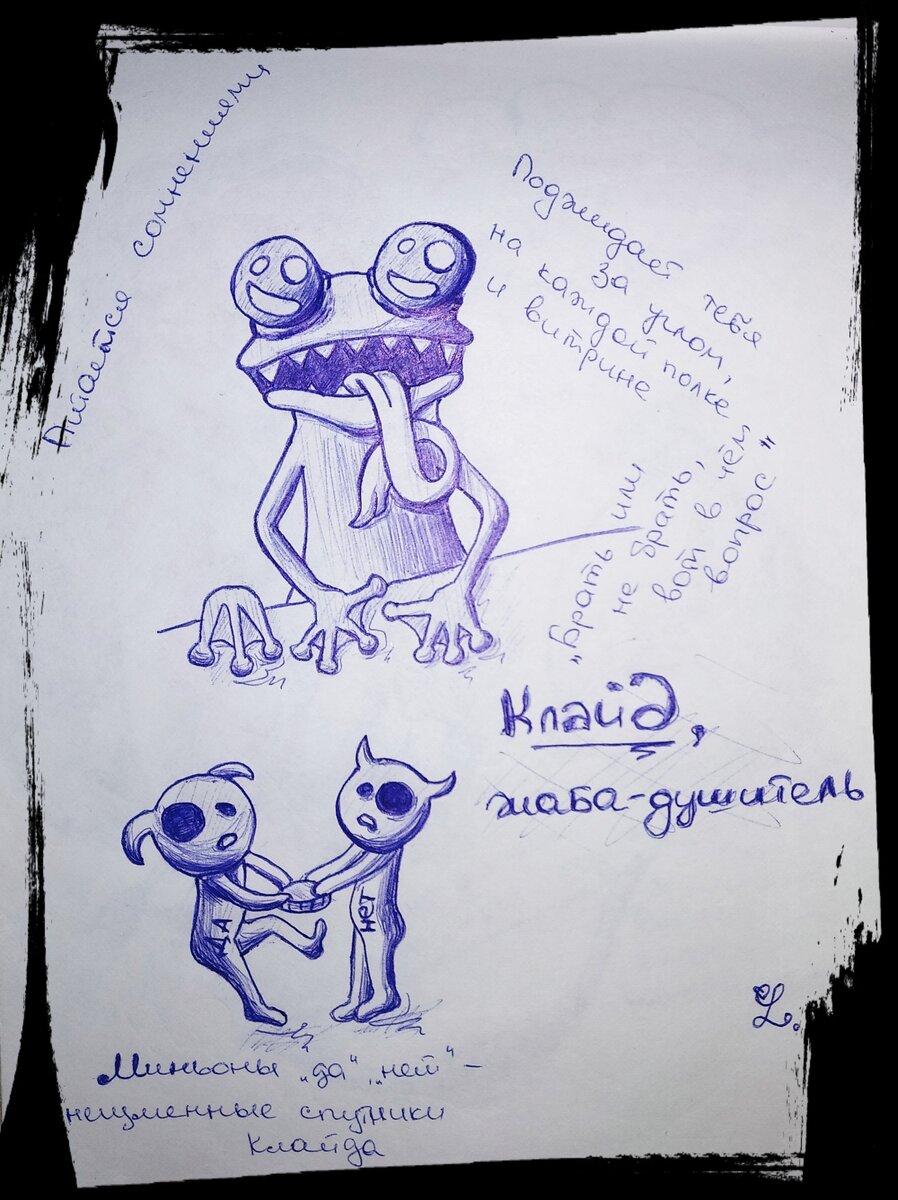 Питается сомнениями
Поджидает тебя
за углом,
на каждой полке
и витрине
„Брать или
не брать,
вот в чём
вопрос“
Клайд,
жаба-душитель
ДА
НЕТ
Миньоны „да“, „нет“ -
неизменные спутники
Клайда
L.